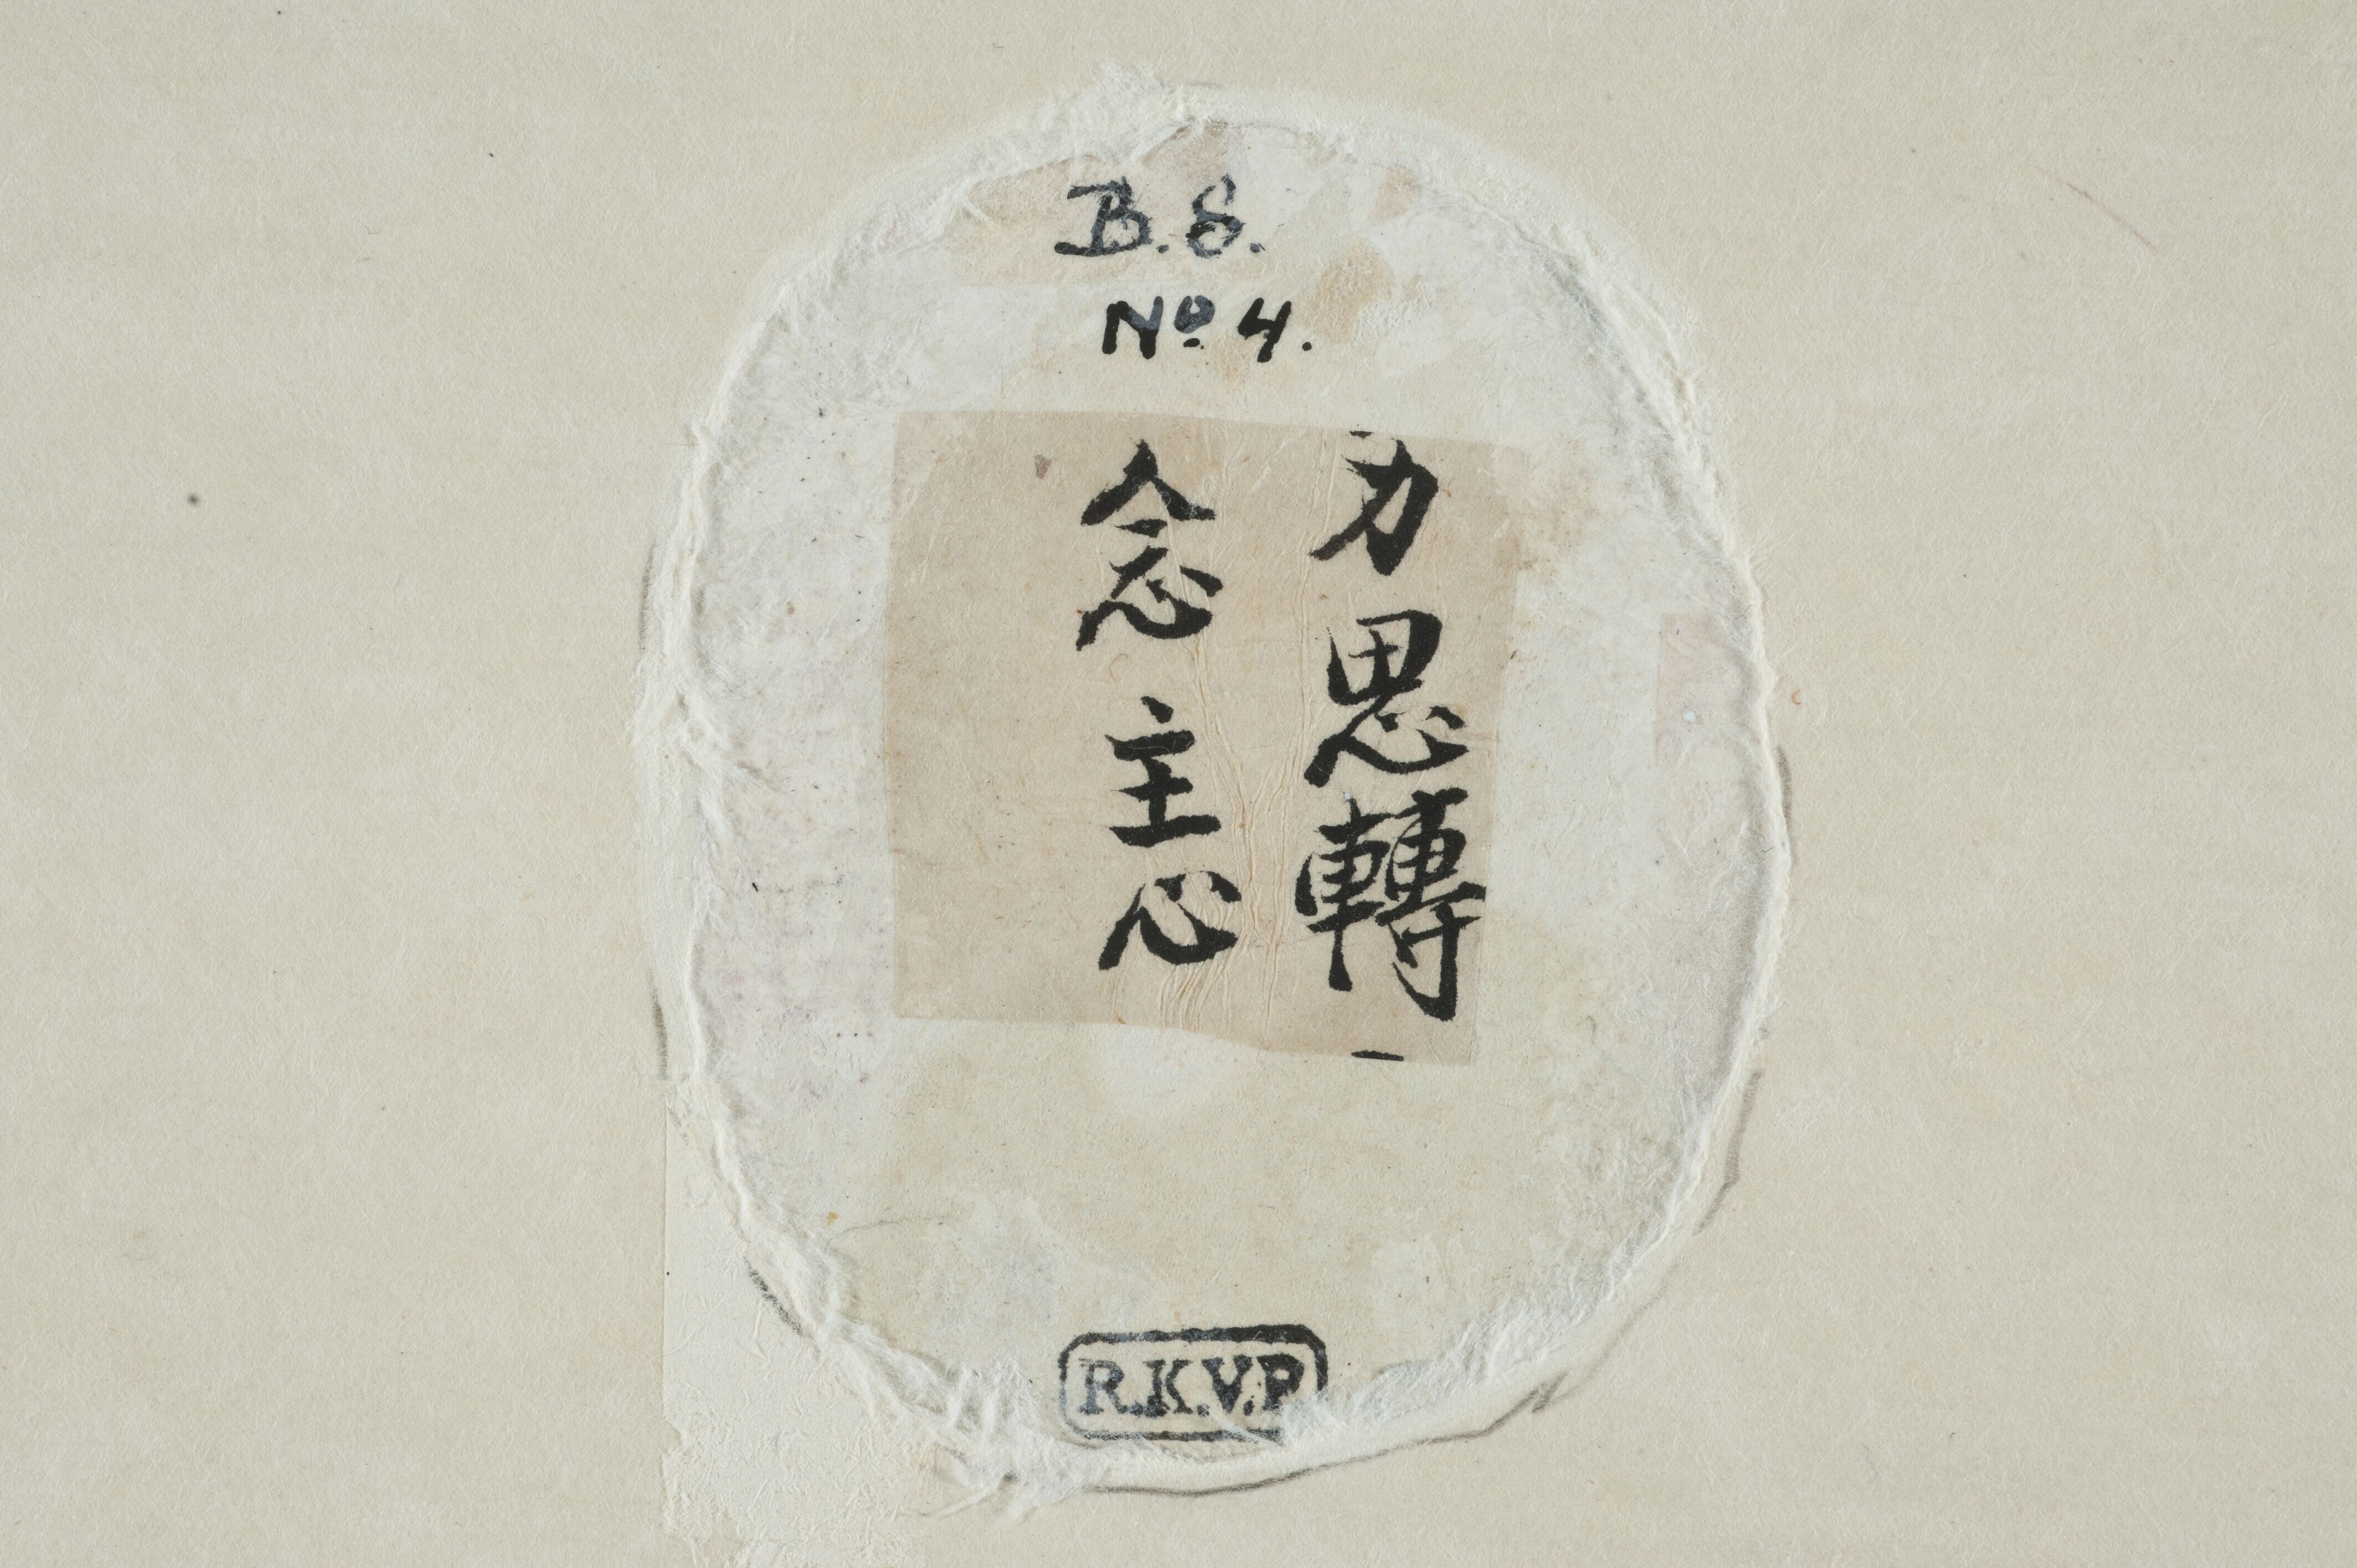 B.S.
No 4.
力思轉
念主心
R.K.V.P